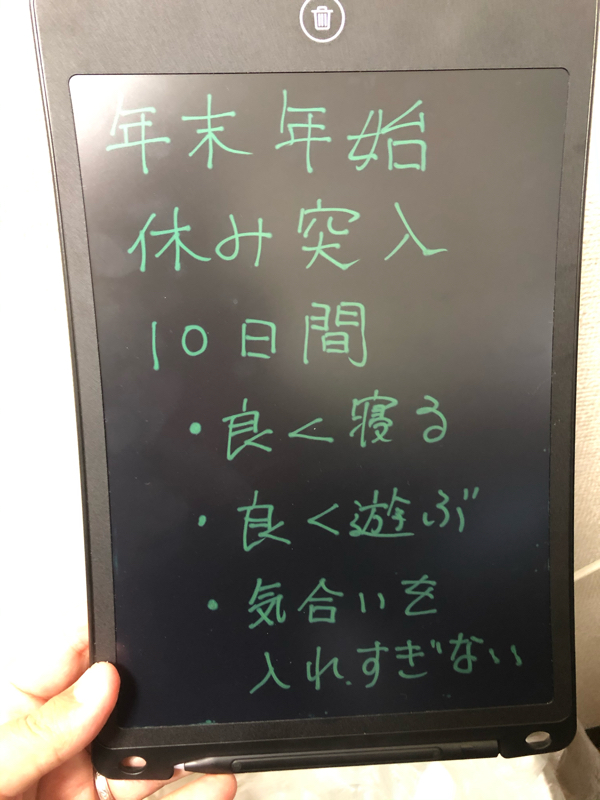 年末年始
休み突入
10日間
・良く寝る
・良く遊ぶ
・気合いを
入れすぎない